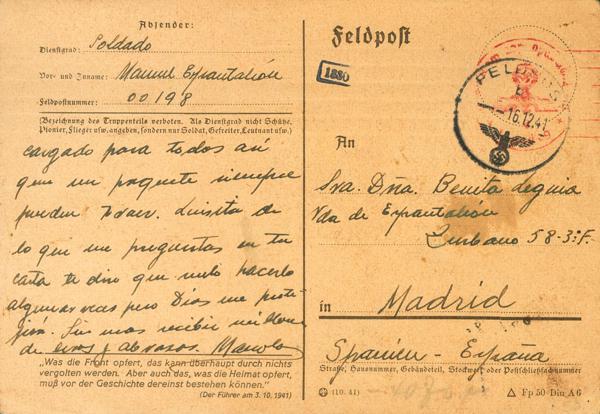 Absender:
Dienstgrad: Soldado
Vor- und Zuname: Manuel Espantaleón
Feldpostnummer: 00198
(Bezeichnung des Truppenteils verboten. Als Dienstgrad nicht Schütze,
Pionier, Flieger usw. angeben, sondern nur Soldat, Gefreiter, Leutnant usw.)
cargado para todos así
que un paquete siempre
pueden traer. Luisita de
lo que me preguntas en tu
carta te diré que suelo hacerlo
algunas veces pero Dios me prote-
jera. Sin mas recibir millones
de besos y abrazos. Manolo
„Was die Front opfert, das kann überhaupt durch nichts
vergolten werden. Aber auch das, was die Heimat opfert,
muß vor der Geschichte dereinst bestehen können."
(Der Führer am 3. 10. 1941)
Feldpost
1880
FELDPOST
b
-16.12.41
An
Sra. Dña. Benita Leguia
Vda de Espantaleón
Zurbano 58-3º F.
in Madrid
Spanien - España
Straße, Hausnummer, Gebäudeteil, Stockwerk oder Postschließfachnummer
(10. 41)
Fp 50 Din A 6